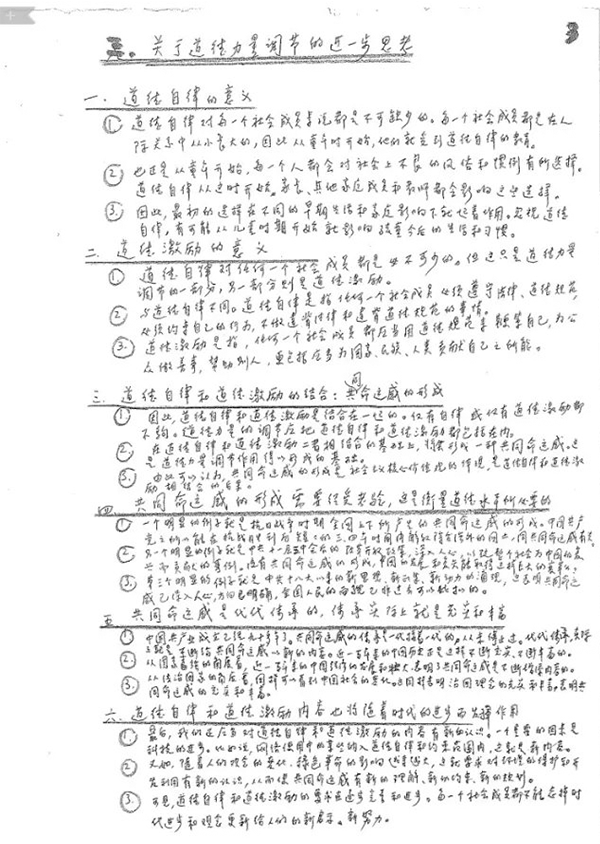 3
三。关于道德力量调节的进一步思考
一. 道德自律的意义
① 道德自律对每一个社会成员来说都是不可缺少的。每一个社会成员都是在人
际关系中从小长大的，因此从童年时开始，他们就受到道德自律的教育。
② 也正是从童年开始，每一个人都会对社会上不良的风俗和惯例有所选择。
道德自律从这时开始。家长、其他家庭成员和老师都会影响这些选择。
③. 因此，最初的选择在不同的早期生活和家庭影响下就起着作用。忽视道德
自律，有可能从儿童时期开始就影响孩童今后的生活和习惯。
二. 道德激励的意义
① 道德自律对任何一个社会成员都是必不可少的。但这只是道德力量
调节的一部分，另一部分则是道德激励。
② 与道德自律不同。道德自律是指任何一个社会成员必须遵守法律、道德规范，
必须约束自己的行为，不做违背法律和违背道德规范的事情。
③. 道德激励是指，任何一个社会成员都应当用道德规范来鞭策自己，为公
众做善事，帮助别人，更包括应当为国家、民族、人类贡献自己之所能。
三. 道德自律和道德激励的结合：共同命运感的形成
① 因此，道德自律和道德激励是结合在一起的。仅有自律或仅有道德激励都
不够。道德力量的调节应把道德自律和道德激励都包括在内。
② 在道德自律和道德激励二者相结合的基础上，将会形成一种共同命运感。这
是道德力量调节作用得以形成的基础。
③. 由此可以认为，共同命运感的形成是社会主义核心价值观的体现，是道德自律和道德激
励相结合的
四 共同命运感的形成需要经受考验，这是衡量道德水平所必要的
① 一个明显的例子就是抗日战争时期全国上下所产生的共同命运感的形成。中国共产
党之所以能在抗战
② 另一个明显的例子就是中共十一届三中全会的改革开放政策，深入人心，
③ 第三个明显的例子就是中共十八大以来的新思想、新方案、新动力的涌现，
感已深入人心，方向已明确，全国人民的
五 共同命运感是代代传承的，传承实际上就是充实和丰富
① 中国共产党成立已经九十多年了。共同命运感的传承是一代接着一代的，从未停止过。代代传承，实际
上就是不断给共同命运感以新的内容。近一百年来的中国历史正是这样不断充实、不断丰富的。
② 从国家富强的角度看，近一百年来的中国经济的发展和壮大，表明了共同命运感是不断增添内容的。
③. 从法治国家的角度看，同样可以看到中国社会的变化。这同样表明治国理念的充实和丰富，表明共
同命运感的充实和丰富。
六. 道德自律和道德激励内容也将随着时代的进步而发挥作用
① 最后，我们还应当对道德自律和道德激励的内容有新的认识。一个重要的因素是
科技的进步。比如说，网络使用中的某些纳入道德自律和约束范围内，这就是新内容。
② 又如，随着人的观念的变化，绿色革命的影响越来越大，这就要求对环境的保护和开
发利用有新的认识，从而使共同命运感有新的理解、新的约束、新的规划。
③. 可见，道德自律和道德激励的要求在逐步完善和进步。每一个社会成员都不能忘掉时
代进步和观念更新给人们的新启示、新努力。